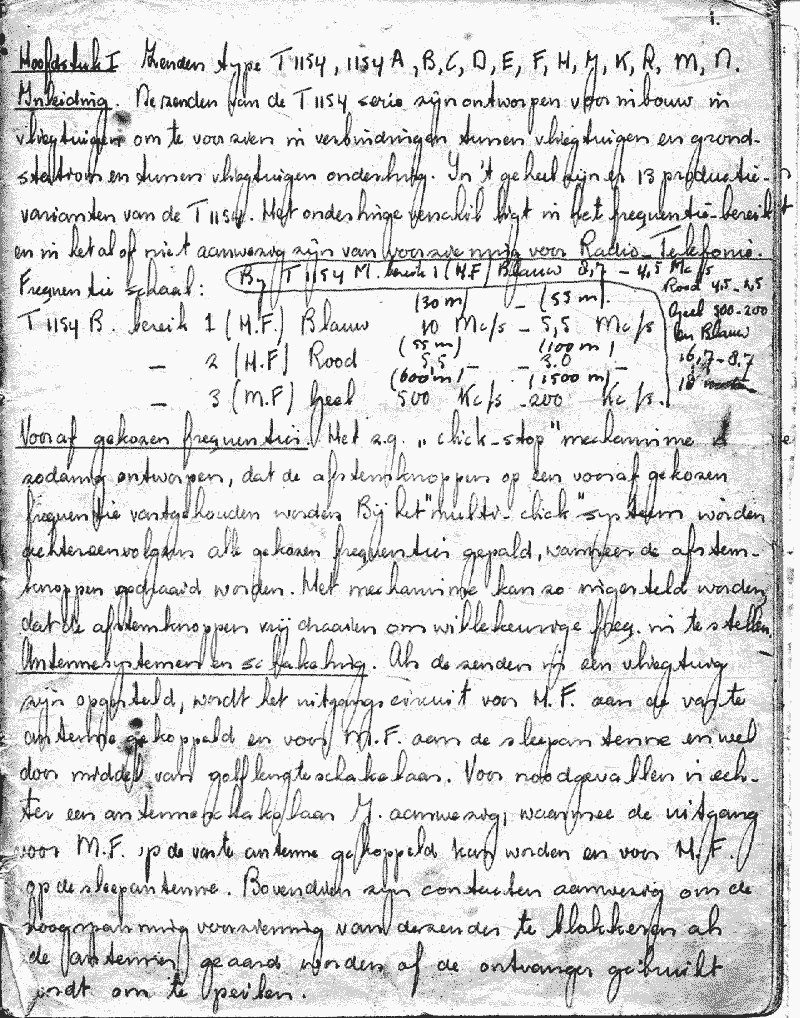 1.
Hoofdstuk I Zenders type T 1154, 1154 A, B, C, D, E, F, H, J, K, R, M, N.
Inleiding. De zenders van de T 1154 serie zijn ontworpen voor inbouw in
vliegtuigen om te voorzien in verbindingen tussen vliegtuigen en grond-
stations en tussen vliegtuigen onderling. In 't geheel zijn er 13 productie-
varianten van de T 1154. Het onderlinge verschil ligt in het frequentie-bereik
en in het al of niet aanwezig zijn van voorziening voor Radio-Telefonie.
Frequentie schaal: By T 1154 M. bereik 1 (H.F) Blauw 8,7 - 4,5 Mc/s
Rood 4,5 - 2,5
(30 m) - (55 m).
Geel 500-200
T 1154 B. bereik 1 (H.F.) Blauw 10 Mc/s - 5,5 Mc/s
en Blauw
(55 m) (100 m)
16,7 - 8,7
- 2 (H.F) Rood 5,5 - - 3.0 -
(600 m) - (1500 m) -
18
- 3 (M.F) Geel 500 Kc/s - 200 Kc/s.
Vooraf gekozen frequenties. Het z.g. „click-stop" mechanisme is
zodanig ontworpen, dat de afstemknoppen op een vooraf gekozen
frequentie vastgehouden worden Bij het "multi-click" systeem worden
achtereenvolgens alle gekozen frequenties gepald, wanneer de afstem-
knoppen gedraaid worden. Het mechanisme kan zo ingesteld worden,
dat de afstemknoppen vrij draaien om willekeurige freq. in te stellen.
Antennesystemen en schakeling. Als de zenders in een vliegtuig
zijn opgesteld, wordt het uitgangscircuit voor H.F. aan de vaste
antenne gekoppeld en voor M.F. aan de sleepantenne en wel
door middel van golflengteschakelaar. Voor noodgevallen is ech-
ter een antenneschakelaar J. aanwezig, waarmee de uitgang
voor M.F. op de vaste antenne gekoppeld kan worden en voor H.F.
op de sleepantenne. Bovendien zijn contacten aanwezig om de
hoogspanning voorziening van de zender te blokkeren als
de antennes geaard worden of de ontvanger gebruikt
wordt om te peilen.